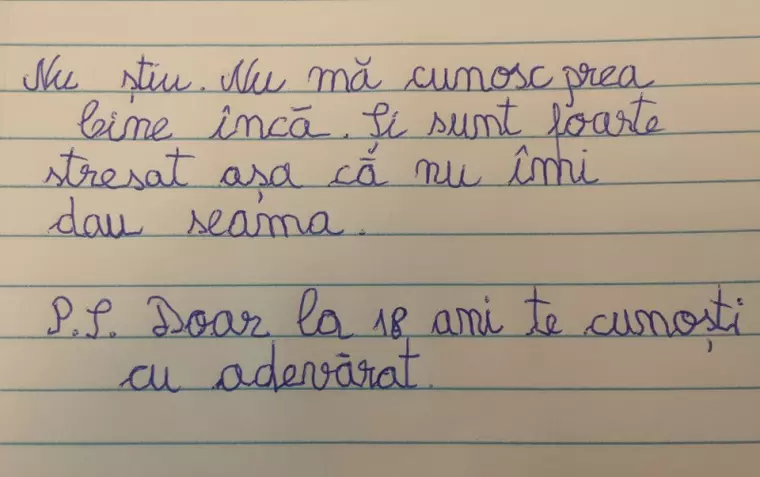 Nu știu. Nu mă cunosc prea
bine încă. Și sunt foarte
stresat așa că nu îmi
dau seama.
P.S. Doar la 18 ani te cunoști
cu adevărat.